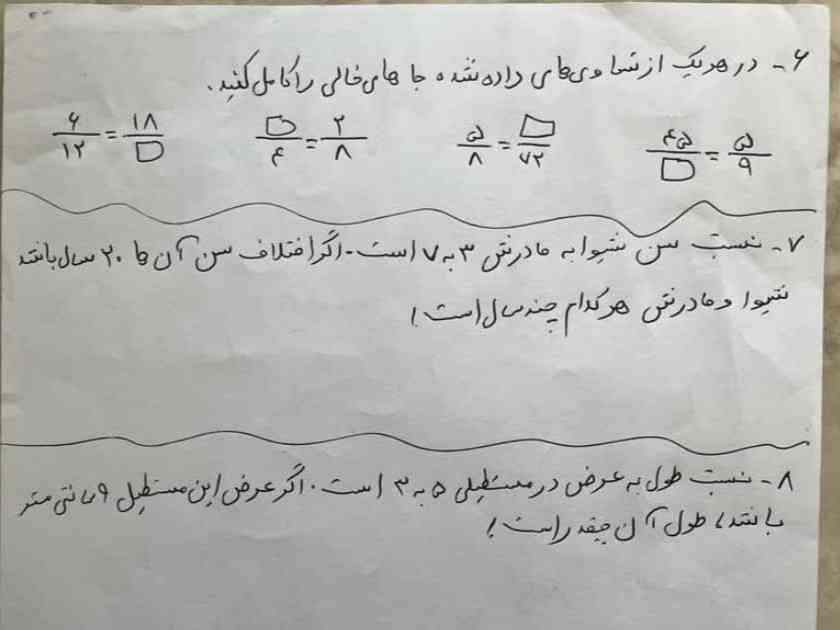 ۶- در هر یک از تساوی‌های داده شده جا های خالی را کامل کنید.
۴۵/□ = ۵/۹   ۵/۸ = □/۷۲   □/۴ = ۲/۸   ۶/۱۲ = ۱۸/□
۷- نسبت سن شیوا به مادرش ۳ به ۷ است. اگر اختلاف سن آن ها ۲۰ سال باشد
شیوا و مادرش هر کدام چند سال است!
۸- نسبت طول به عرض در مستطیلی ۵ به ۳ است. اگر عرض این مستطیل ۹ سانتی متر
باشد، طول آن چقدر است!